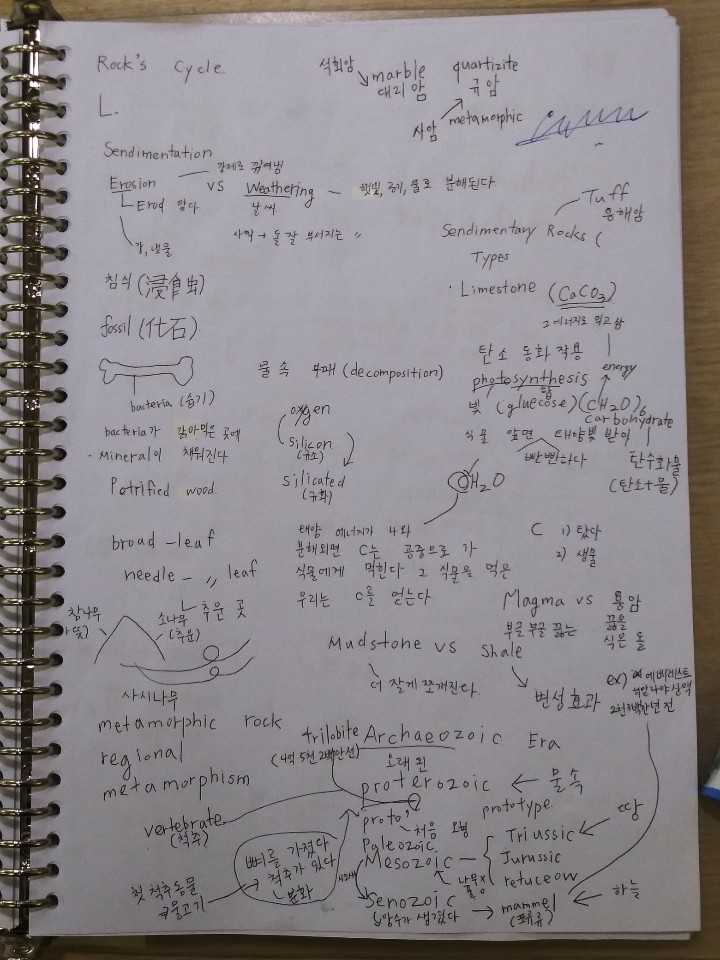 Rock's Cycle
L.
석회암 marble quartizite
대리암 규암
사암 metamorphic
Sendimentation
강제로 꺾여냄
Erosion VS Weathering - 햇빛, 공기, 물로 분해된다.
Erod 깎다 날씨
강, 냇물 사막 → 돌 잘 부서지는 〃
Tuff
응해암
Sendimentary Rocks (
Types
· Limestone (CaCO3)
그 에너지로 먹고 삶
침식 (浸食虫)
fossil (化石)
bacteria (습기)
bacteria가 갉아먹은 곳에
- Mineral이 채워진다
Petrified wood
물 속 부패 (decomposition)
oxygen
silicon
(규소)
silicated
(규화)
탄소 동화 작용
energy
photosynthesis
합
빛 (gluecose) (CH2O)6
carbohydrate
식물 앞면 태양빛 받이
빤빤하다
탄수화물
(탄소+물)
CH2O
broad - leaf
needle - 〃 leaf
참나무 소나무 추운 곳
(추운)
사시나무
태양 에너지가 와
분해되면 C는 공중으로 가
식물에게 먹힌다 그 식물을 먹은
우리는 C를 얻는다
C 1) 탔다
2) 생물
Magma vs 용암
부글부글 끓는 끓은
식은 돌
Mudstone vs Shale
더 잘게 쪼개진다.
변성효과
ex) 에베레스트
히말라야 산맥
metamorphic rock
regional
metamorphism
trilobite Archaeozoic Era
오래된
proterozoic ← 물속
prototype
proto'
처음 모형
vertebrate
(척추)
Paleozoic
Mesozoic
Triussic ← 땅
Jurussic
retuceow
뼈를 가졌다
척추가 있다
분화
첫 척추동물
물고기
Senozoic → mammel ← 하늘
(포유류)